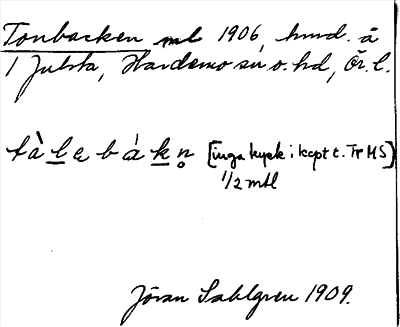 Tonbacken ml 1906, hmd. å
1 Julsta, Hardemo sn o. hd, Ör. l.
tàlɛbákn̥ [inga kyck i kopt t. Tr MS]
1/2 mtl
Jöran Sahlgren 1909.